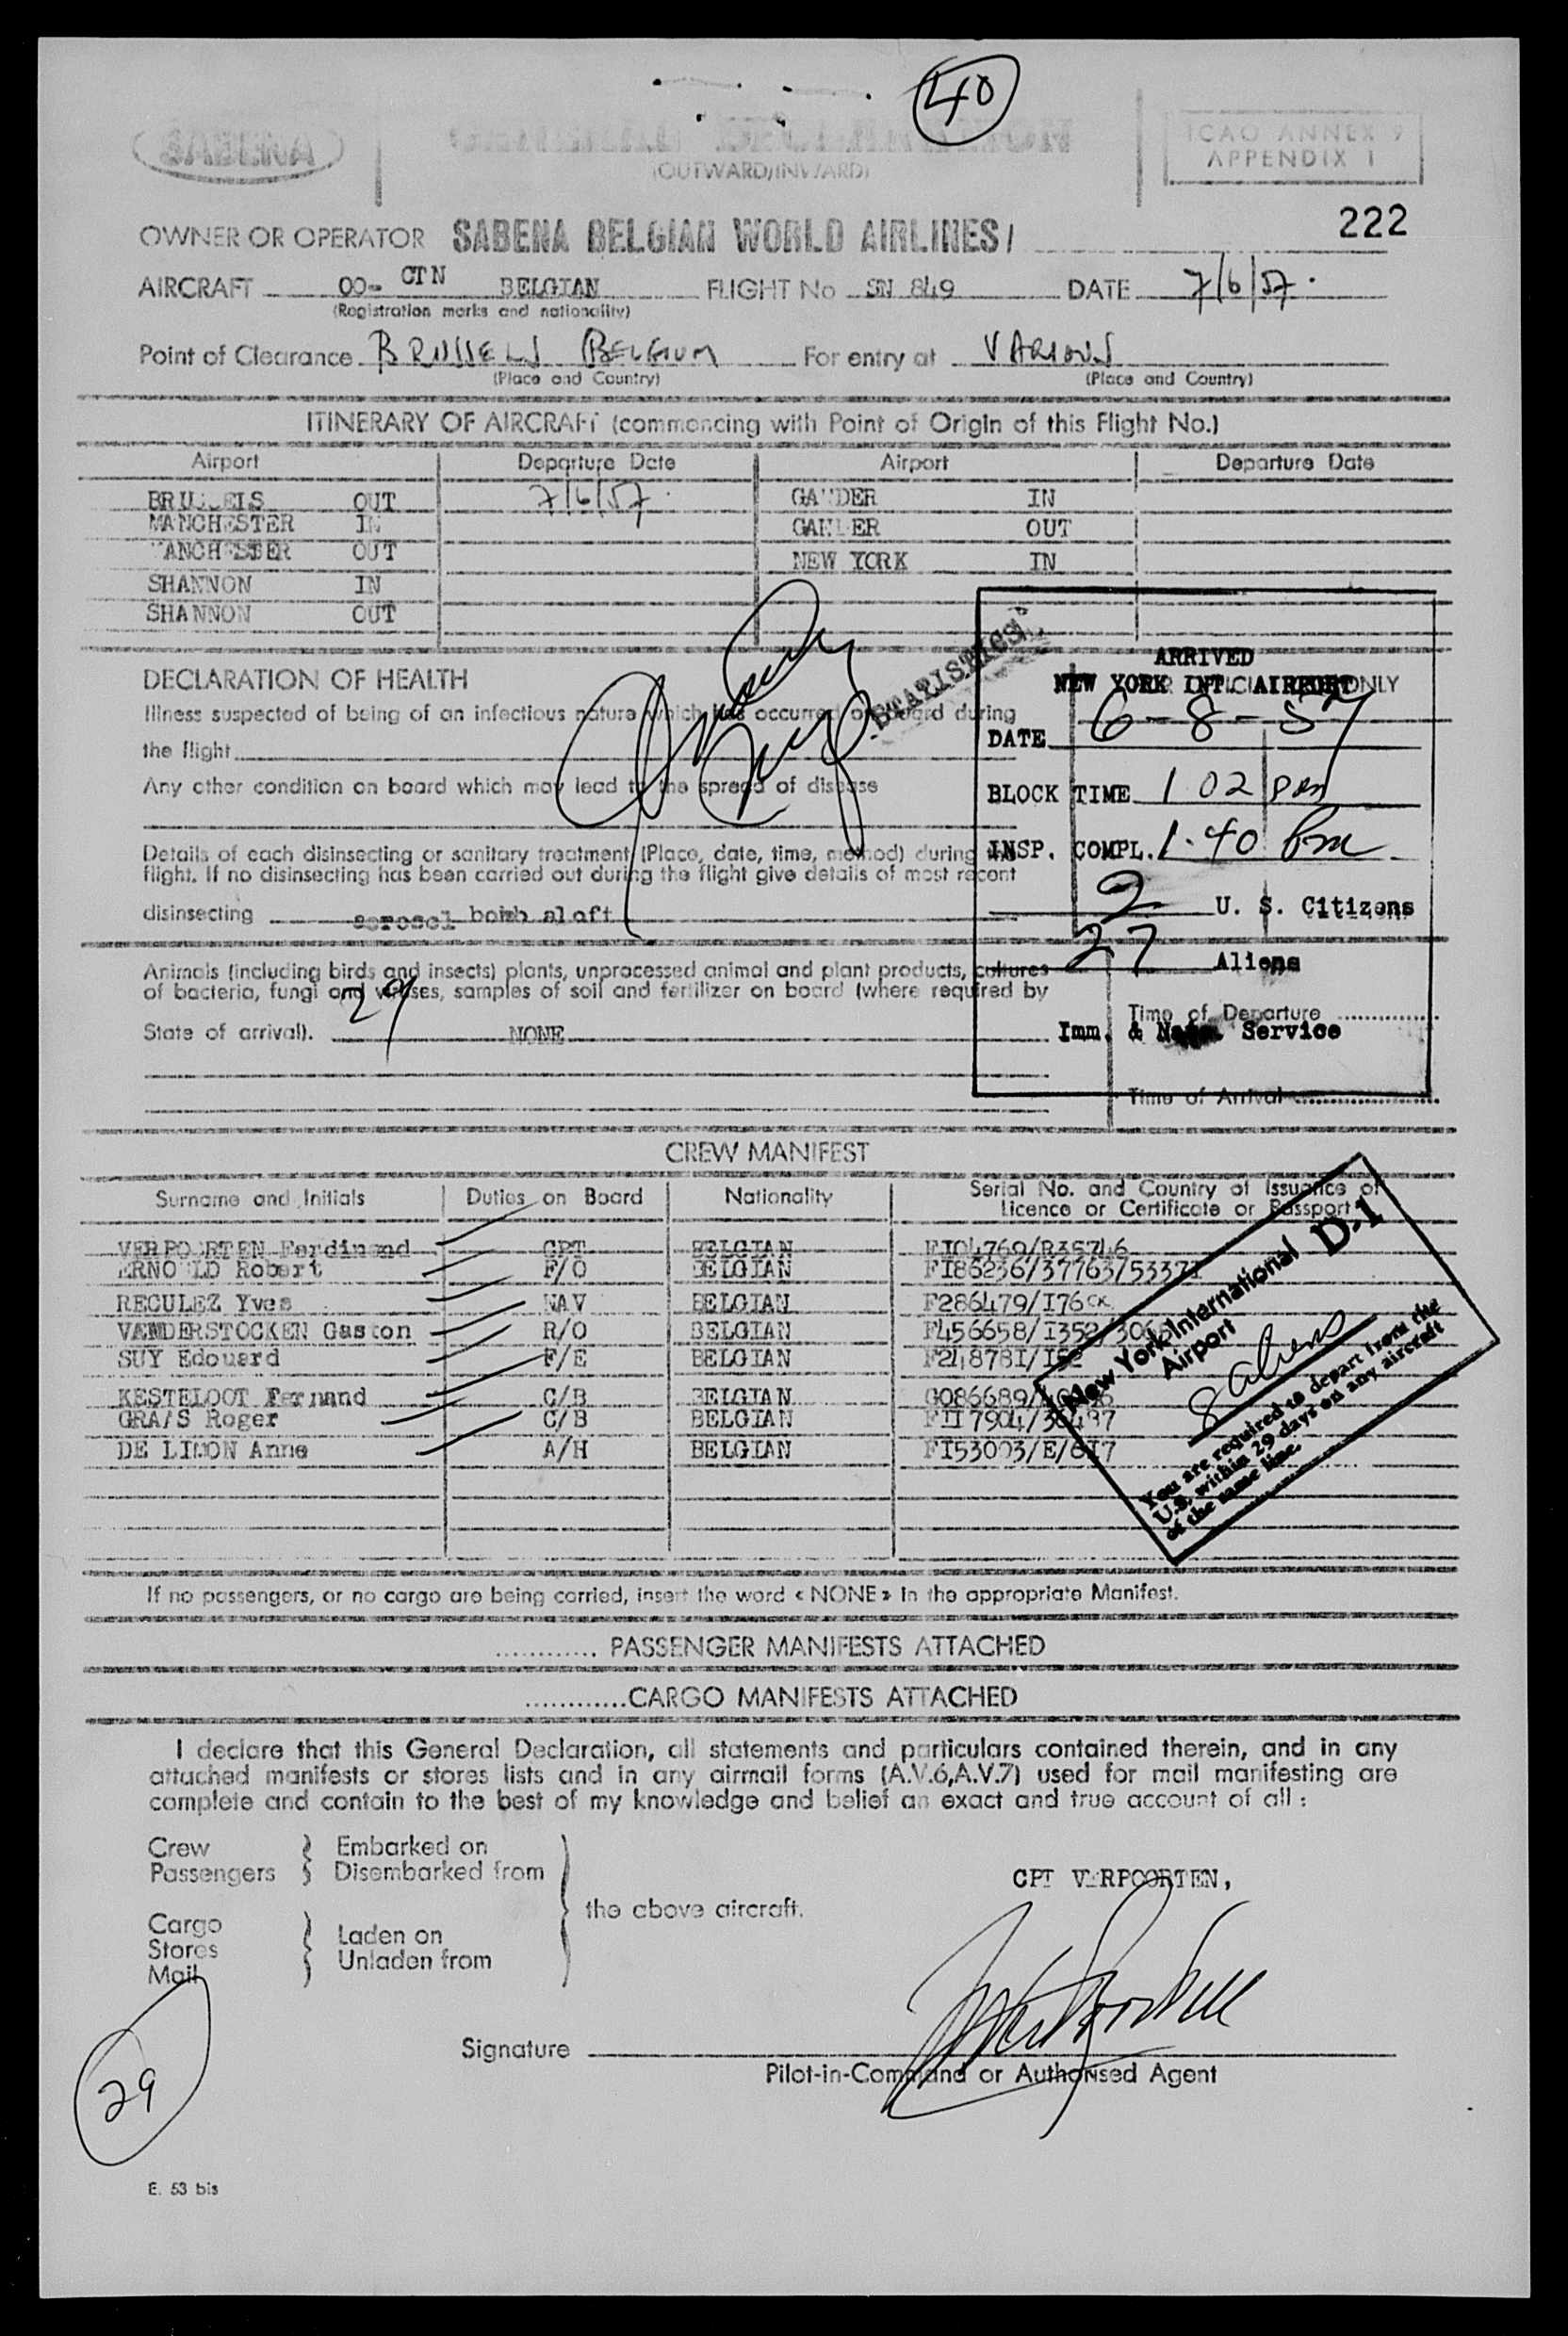 40
SABENA
GENERAL DECLARATION
(OUTWARD/INWARD)
ICAO ANNEX 9
APPENDIX 1
222
OWNER OR OPERATOR SABENA BELGIAN WORLD AIRLINES/
AIRCRAFT OO- CTN BELGIAN FLIGHT No SN 849 DATE 7/6/57.
(Registration marks and nationality)
Point of Clearance BRUSSELS BELGIUM For entry at VARIOUS
(Place and Country) (Place and Country)
ITINERARY OF AIRCRAFT (commencing with Point of Origin of this Flight No.)
Airport Departure Date Airport Departure Date
BRUSSELS OUT 7/6/57. GANDER IN
MANCHESTER IN GANDER OUT
MANCHESTER OUT NEW YORK IN
SHANNON IN
SHANNON OUT
STATISTICS
ARRIVED
NEW YORK INT. AIRPORT ONLY
DATE 6-8-57
BLOCK TIME 1 02 pm
INSP. COMPL. 1.40 Pm
2 U. S. Citizens
27 Aliens
Imm. & Natz. Service
Time of Departure
Time of Arrival
DECLARATION OF HEALTH
Illness suspected of being of an infectious nature which has occurred on board during
the flight
Any other condition on board which may lead to the spread of disease
Details of each disinsecting or sanitary treatment (Place, date, time, method) during the
flight. If no disinsecting has been carried out during the flight give details of most recent
disinsecting aerosol bomb aloft
Animals (including birds and insects) plants, unprocessed animal and plant products, cultures
of bacteria, fungi and viruses, samples of soil and fertilizer on board (where required by
29
State of arrival). NONE
CREW MANIFEST
Surname and Initials Duties on Board Nationality Serial No. and Country of Issuance of
Licence or Certificate or Passport
VERPOORTEN Ferdinand CPT BELGIAN FI04769/R35746
ERNOULD Robert F/O BELGIAN FI86236/37763/53371
RECULEZ Yves NAV BELGIAN F286479/I76
VANDERSTOCKEN Gaston R/O BELGIAN F456658/I352
SUY Edouard F/E BELGIAN F24878I/I52
KESTELOOT Fernand C/B BELGIAN G086689/
GRAAS Roger C/B BELGIAN FII7904/
DE LIMON Anne A/H BELGIAN FI53003/E/6I7
New York International D-1
Airport
8 aliens
You are required to depart from the
U.S. within 29 days on any aircraft
of the same line.
If no passengers, or no cargo are being carried, insert the word « NONE » in the appropriate Manifest.
............ PASSENGER MANIFESTS ATTACHED
............CARGO MANIFESTS ATTACHED
I declare that this General Declaration, all statements and particulars contained therein, and in any
attached manifests or stores lists and in any airmail forms (A.V.6,A.V.7) used for mail manifesting are
complete and contain to the best of my knowledge and belief an exact and true account of all :
Crew Embarked on
Passengers Disembarked from
the above aircraft.
CPT VERPOORTEN,
Cargo
Stores Laden on
Mail Unladen from
29
Signature
Pilot-in-Command or Authorised Agent
E. 53 bis